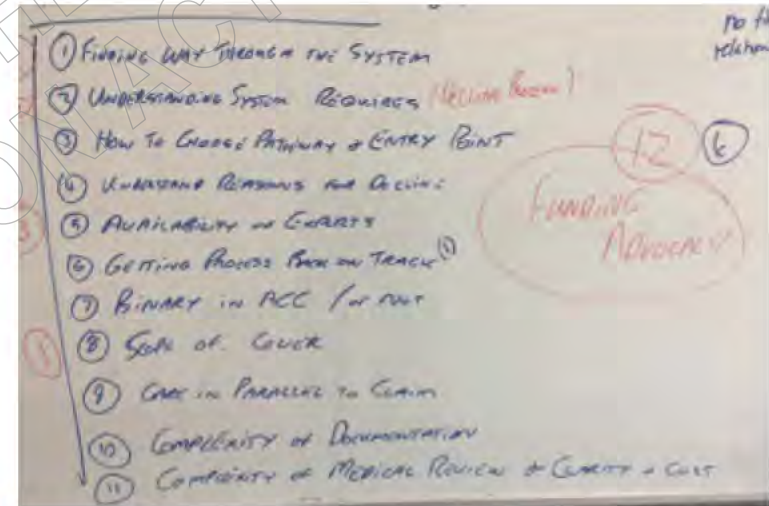 no
① FINDING WAY THROUGH THE SYSTEM
② UNDERSTANDING SYSTEM REQUIRES (DECLINE REASON)
③ HOW TO CHOOSE PATHWAY & ENTRY POINT
④ UNDERSTAND REASONS FOR DECLINE
⑤ AVAILABILITY OF EXPERTS
⑥ GETTING PROCESS BACK ON TRACK
⑦ BINARY IN ACC / OR NOT
⑧ SCOPE OF COVER
⑨ CARE IN PARALLEL TO CLAIM
⑩ COMPLEXITY OF DOCUMENTATION
⑪ COMPLEXITY OF MEDICAL REVIEW & CLARITY & COST
12
FUNDING
ADVOCACY